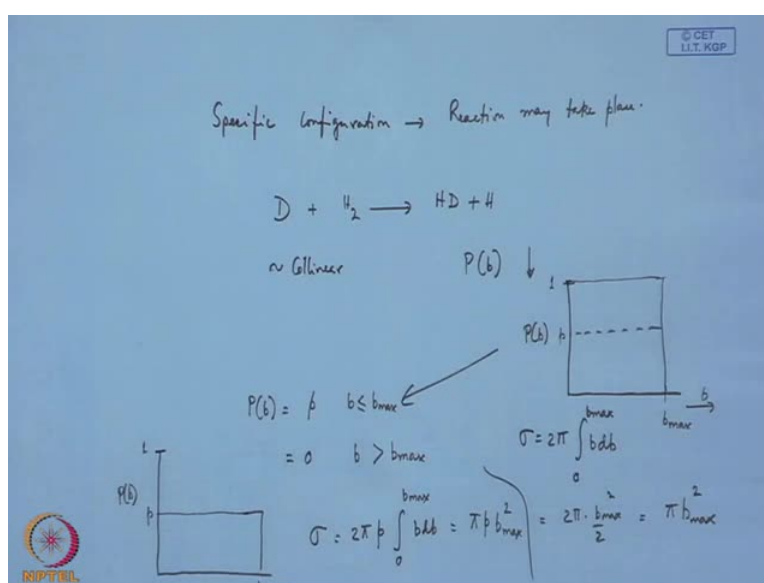 © CET
I.I.T. KGP
Specific configuration → Reaction may take place.
D + H₂ → HD + H
~ Collinear
P(b) ↓
1
P(b) p
b →
b_max
P(b) = p b ≤ b_max
= 0 b > b_max
σ = 2π ∫₀^{b_max} b db
= 2π · b_max²/2 = π b_max²
1
P(b)
p
σ = 2π p ∫₀^{b_max} b db = π p b_max²
NPTEL